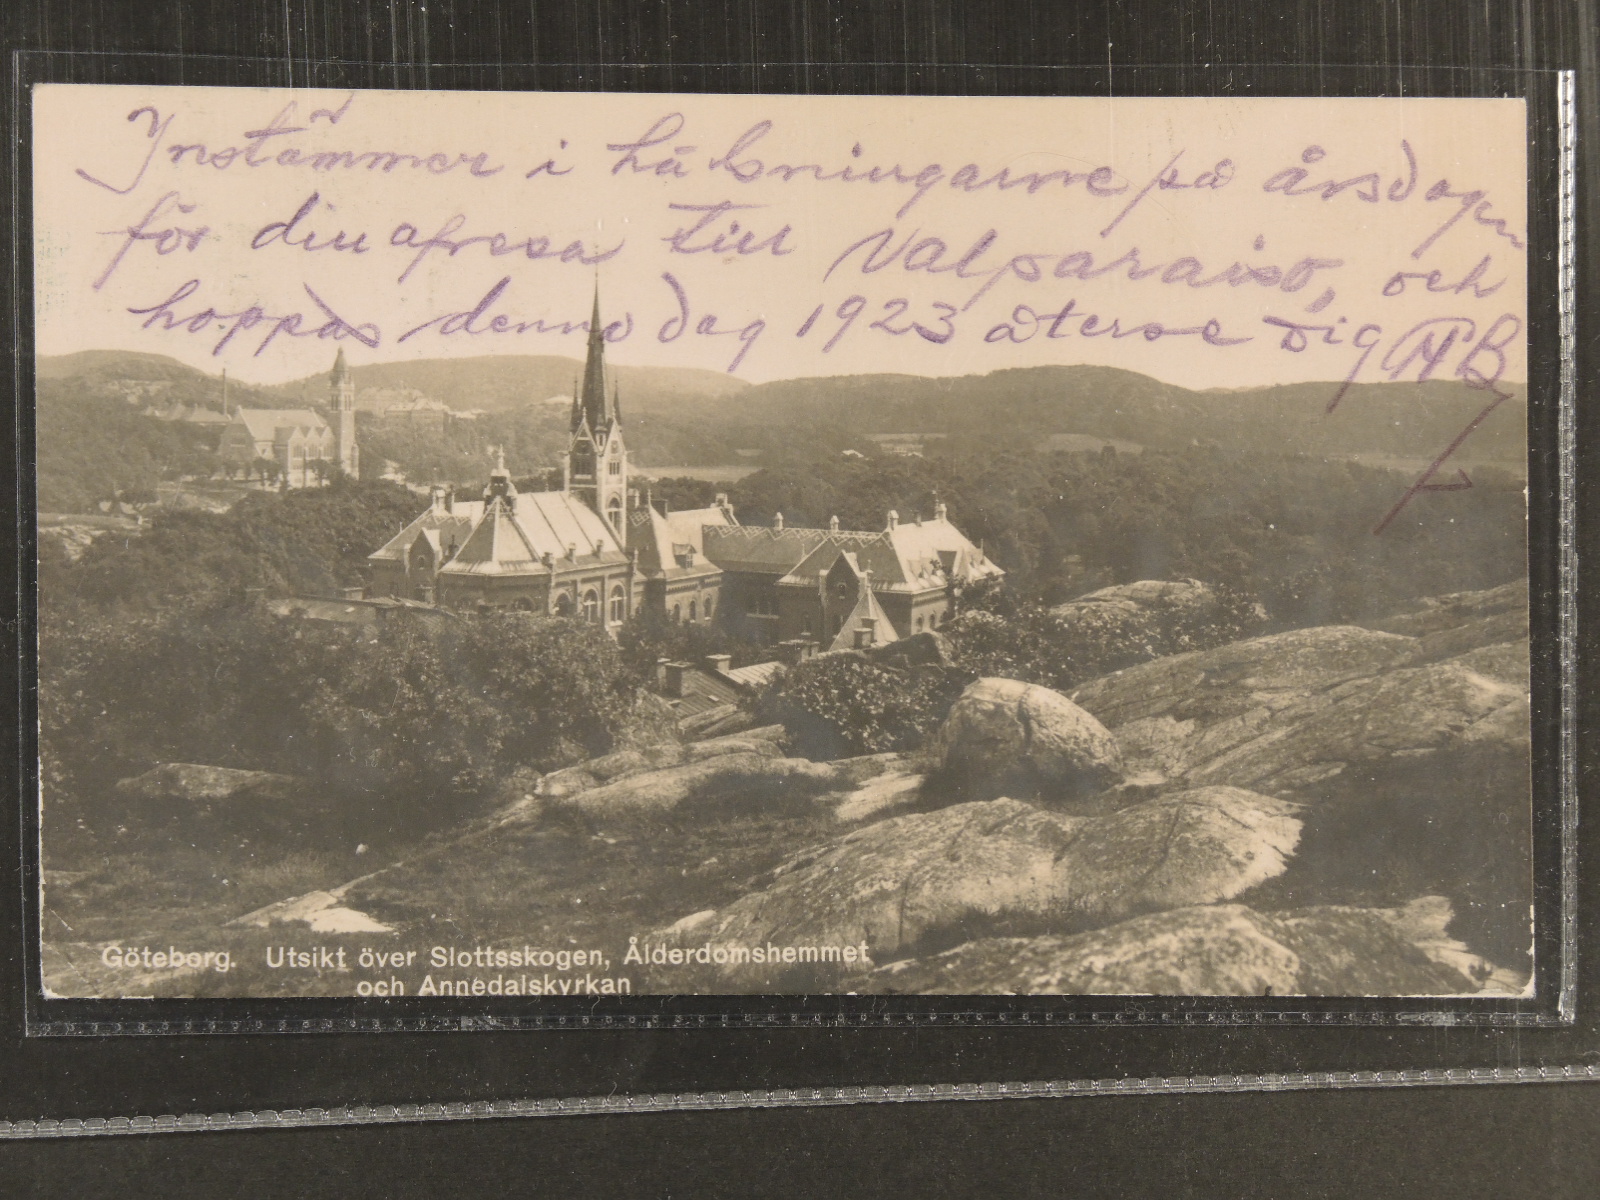 Instämmer i hälsningarne på årsdagen
för din afresa till Valparaiso, och
hoppas denna dag 1923 återse Dig
Göteborg. Utsikt över Slottsskogen, Ålderdomshemmet
och Annedalskyrkan